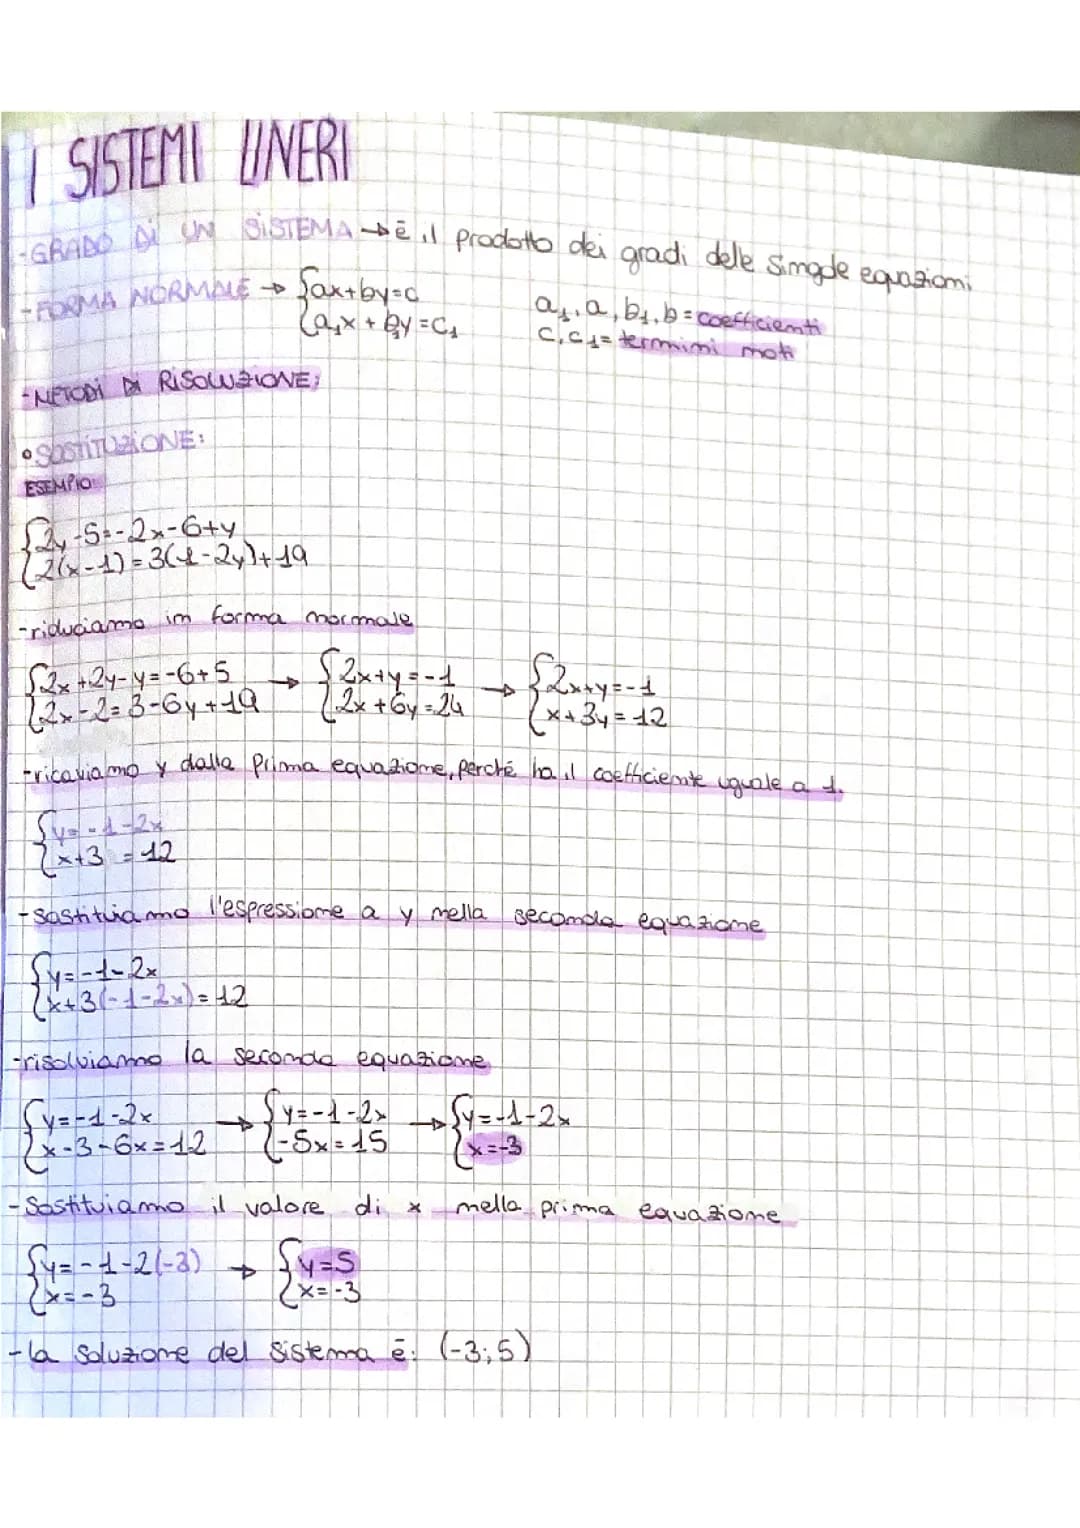 I SISTEMI LINERI
-GRADO DI UN SISTEMA → è il prodotto dei gradi delle singole equazioni
-FORMA NORMALE → {ax+by=c
{a₁x + b₁y = c₁
a₁, a, b₁, b = coefficienti
c, c₁ = termini noti
-METODI DI RISOLUZIONE:
• SOSTITUZIONE:
ESEMPIO:
{2y-5=-2x-6+y
{2(x-1)=3(1-2y)+19
-riduciamo in forma normale
{2x+2y-y=-6+5 → {2x+y=-1 → {2x+y=-1
{2x-2=3-6y+19 {2x+6y=24 {x+3y=12
-ricaviamo y dalla prima equazione, perché ha il coefficiente uguale a 1.
{y=-1-2x
{x+3 =12
-sostituiamo l'espressione a y nella seconda equazione
{y=-1-2x
{x+3(-1-2x)=12
-risolviamo la seconda equazione
{y=-1-2x → {y=-1-2x → {y=-1-2x
{x-3-6x=12 {-5x=15 {x=-3
-Sostituiamo il valore di x nella prima equazione
{y=-1-2(-3) → {y=5
{x=-3 {x=-3
-la soluzione del sistema è: (-3;5)